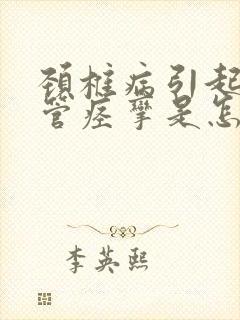 颈椎病引起
管痉挛是怎
李英熙